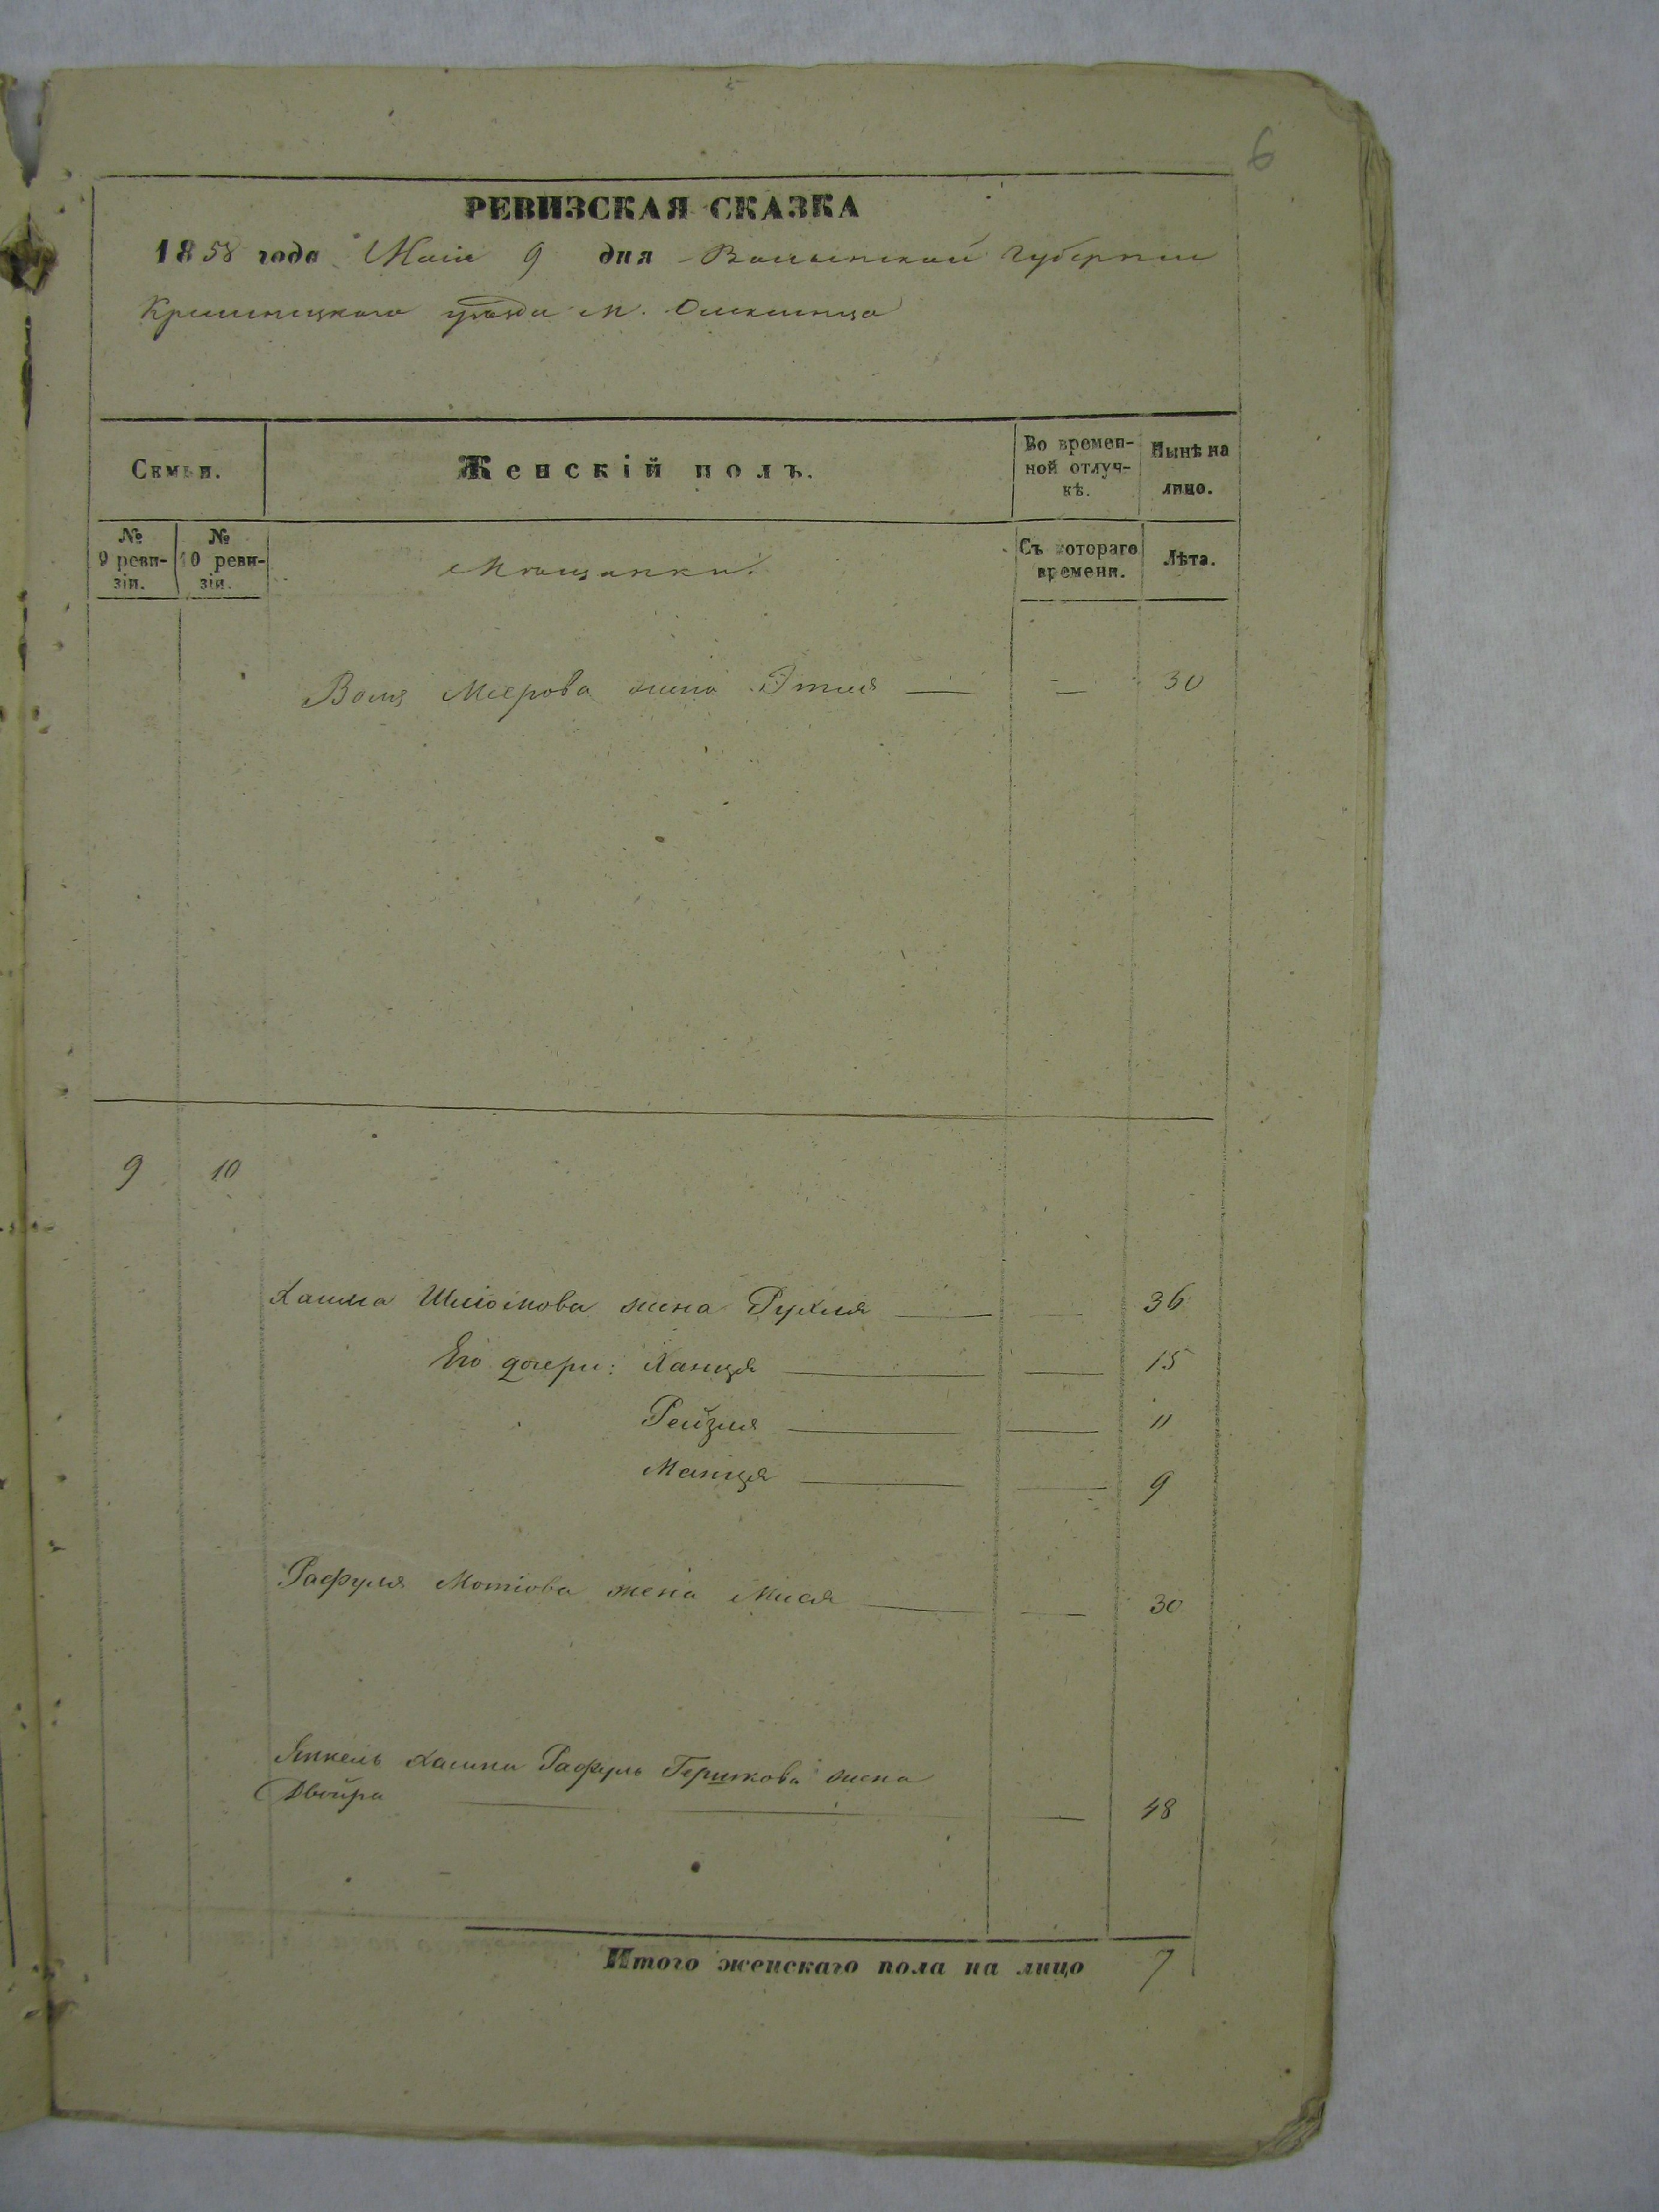 6
РЕВИЗСКАЯ СКАЗКА
1858 года Маія 9 дня Волынской Губернии
Кременецкаго уѣзда м.
Семьи.
Женскій полъ.
Во времен-
ной отлуч-
кѣ.
Нынѣ на
лицо.
№
9 реви-
зіи.
№
10 реви-
зіи.
Мѣщанки.
Съ котораго
времени.
Лѣта.
Меерова жена Этля — — 30
9 10
Хаима Шліомова жена Рухля — — 36
Его дочери: Ханця — — 15
Рейзля — — 11
Манця — — 9
Рафуля Мотіова жена Мися — — 30
Янкель Хаима Рафуль Гершкова жена
Двойра — — 48
Итого женскаго пола на лицо 7